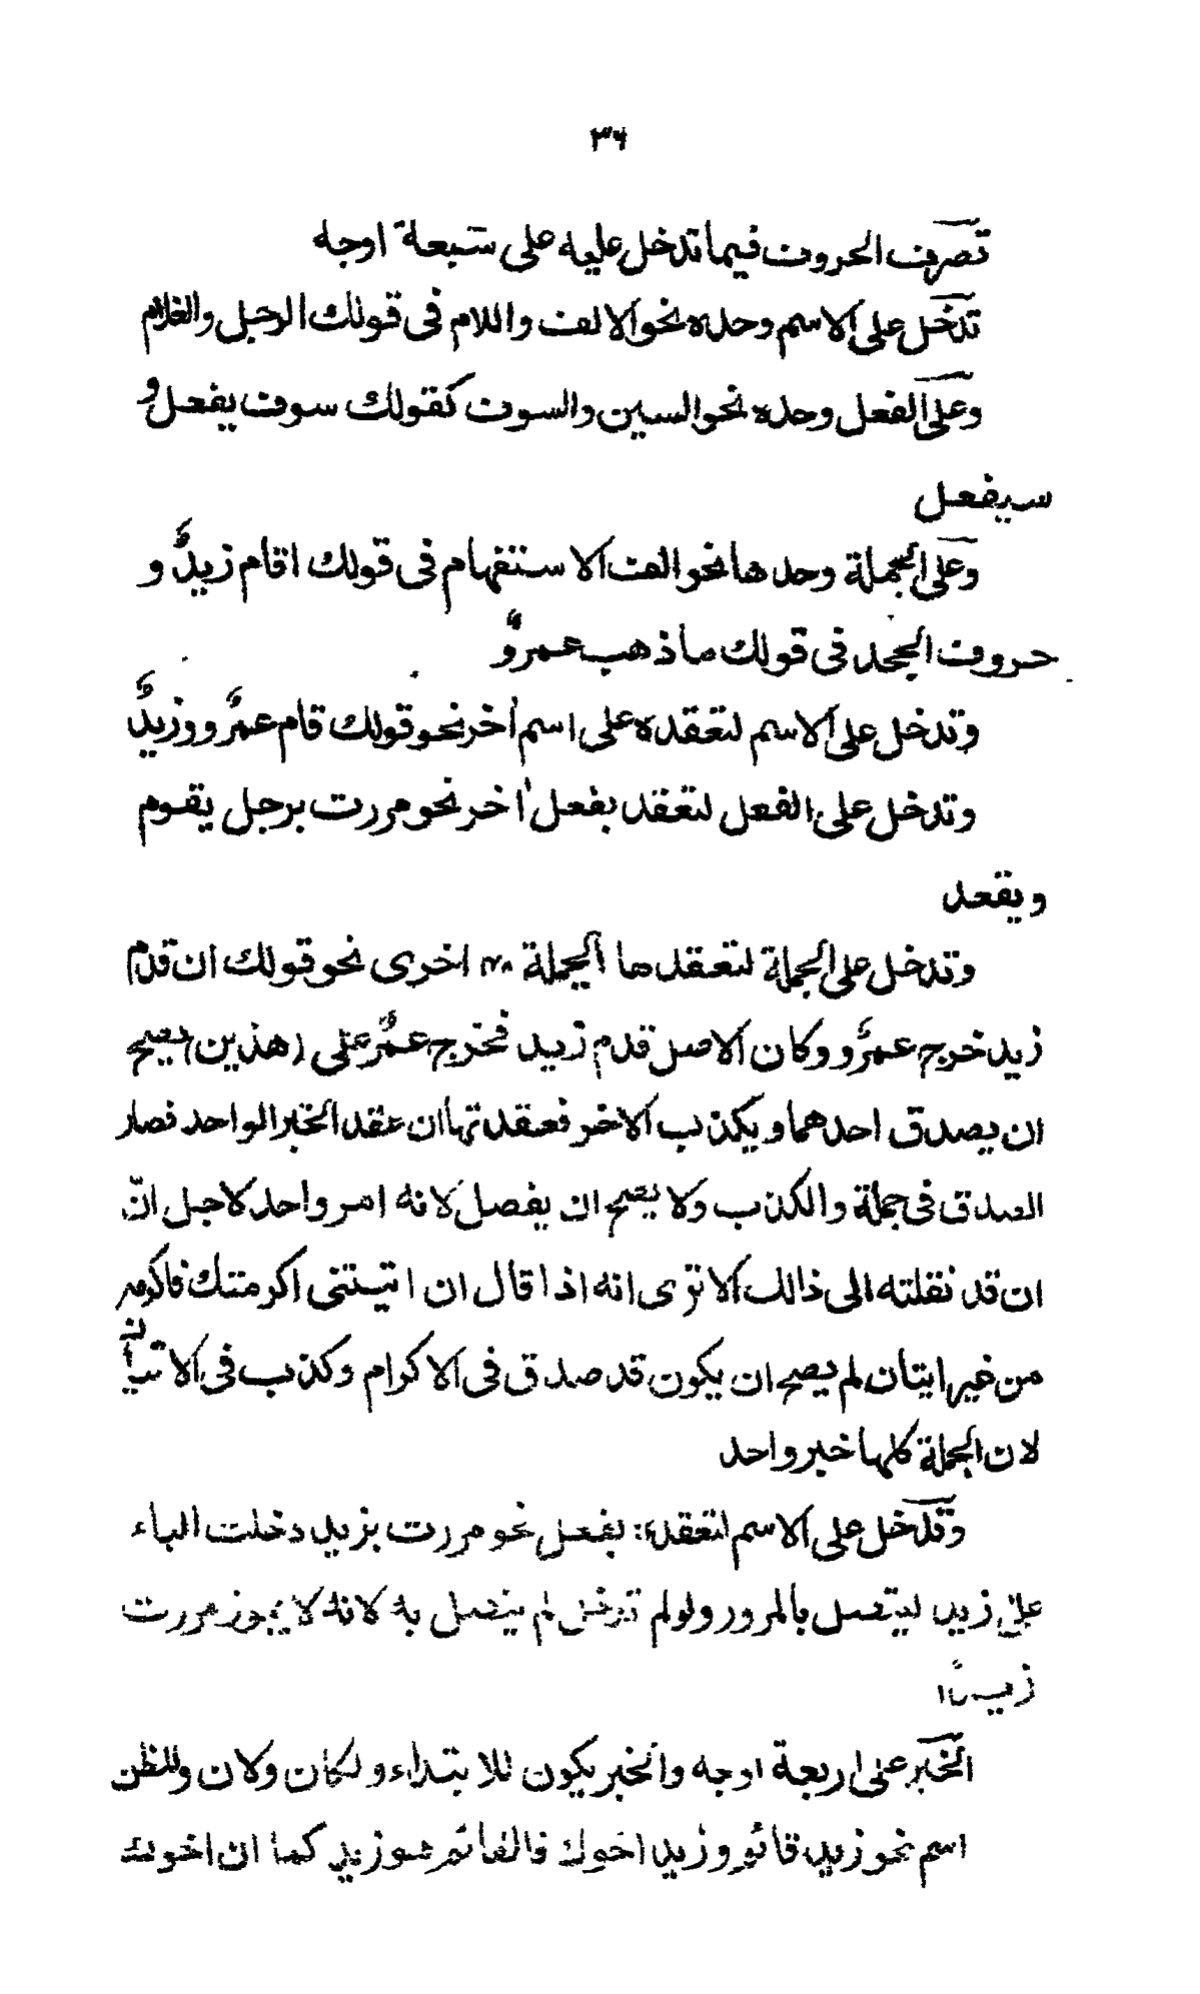 ٣٦
تصرف الحروف فيما تدخل عليه على سبعة اوجه
تدخل على الاسم وحده نحو الالف واللام فى قولك الرجل والغلام
وعلى الفعل وحده نحو السين والسوف كقولك سوف يفعل و
سيفعل
وعلى الجملة وحدها نحو الف الاستفهام فى قولك اقام زيدٌ و
حروف الجحد فى قولك ما ذهب عمروٌ
وتدخل على الاسم لتعقده على اسم اٰخر نحو قولك قام عمرٌو وزيدٌ
وتدخل على الفعل لتعقد بفعل اٰخر نحو مررت برجل يقوم
ويقعد
وتدخل على الجملة لتعقدها الجملة اخرى نحو قولك ان قدم
زيد خرج عمرٌو وكان الاصل قدم زيد فخرج عمرٌ على هذين يصح
ان يصدق احدهما ويكذب الاخر فعقدتها ان عقد الخبر الواحد فصار
الصدق فى جملة والكذب ولا يصح ان يفصل لانه امر واحد لاجل انّ
ان قد نقلته الى ذالك الا ترى انه اذا قال ان اتيتنى اكرمتك فاكرمه
من غير ايتان لم يصح ان يكون قد صدق فى الاكرام وكذب فى الاتيان
لان الجملة كلها خبر واحد
وتدخل على الاسم لتعقده بفعل نحو مررت بزيد دخلت الباء
على زيد ليتصل بالمرور ولو لم تدخل لم يتصل به لانه لا يجوز مررت
زيدًا
الخبر على اربعة اوجه والخبر يكون للابتداء ولكان ولان وللظن
اسم نحو زيد قائم وزيد اخوك فالقائم هو زيد كما ان اخوك